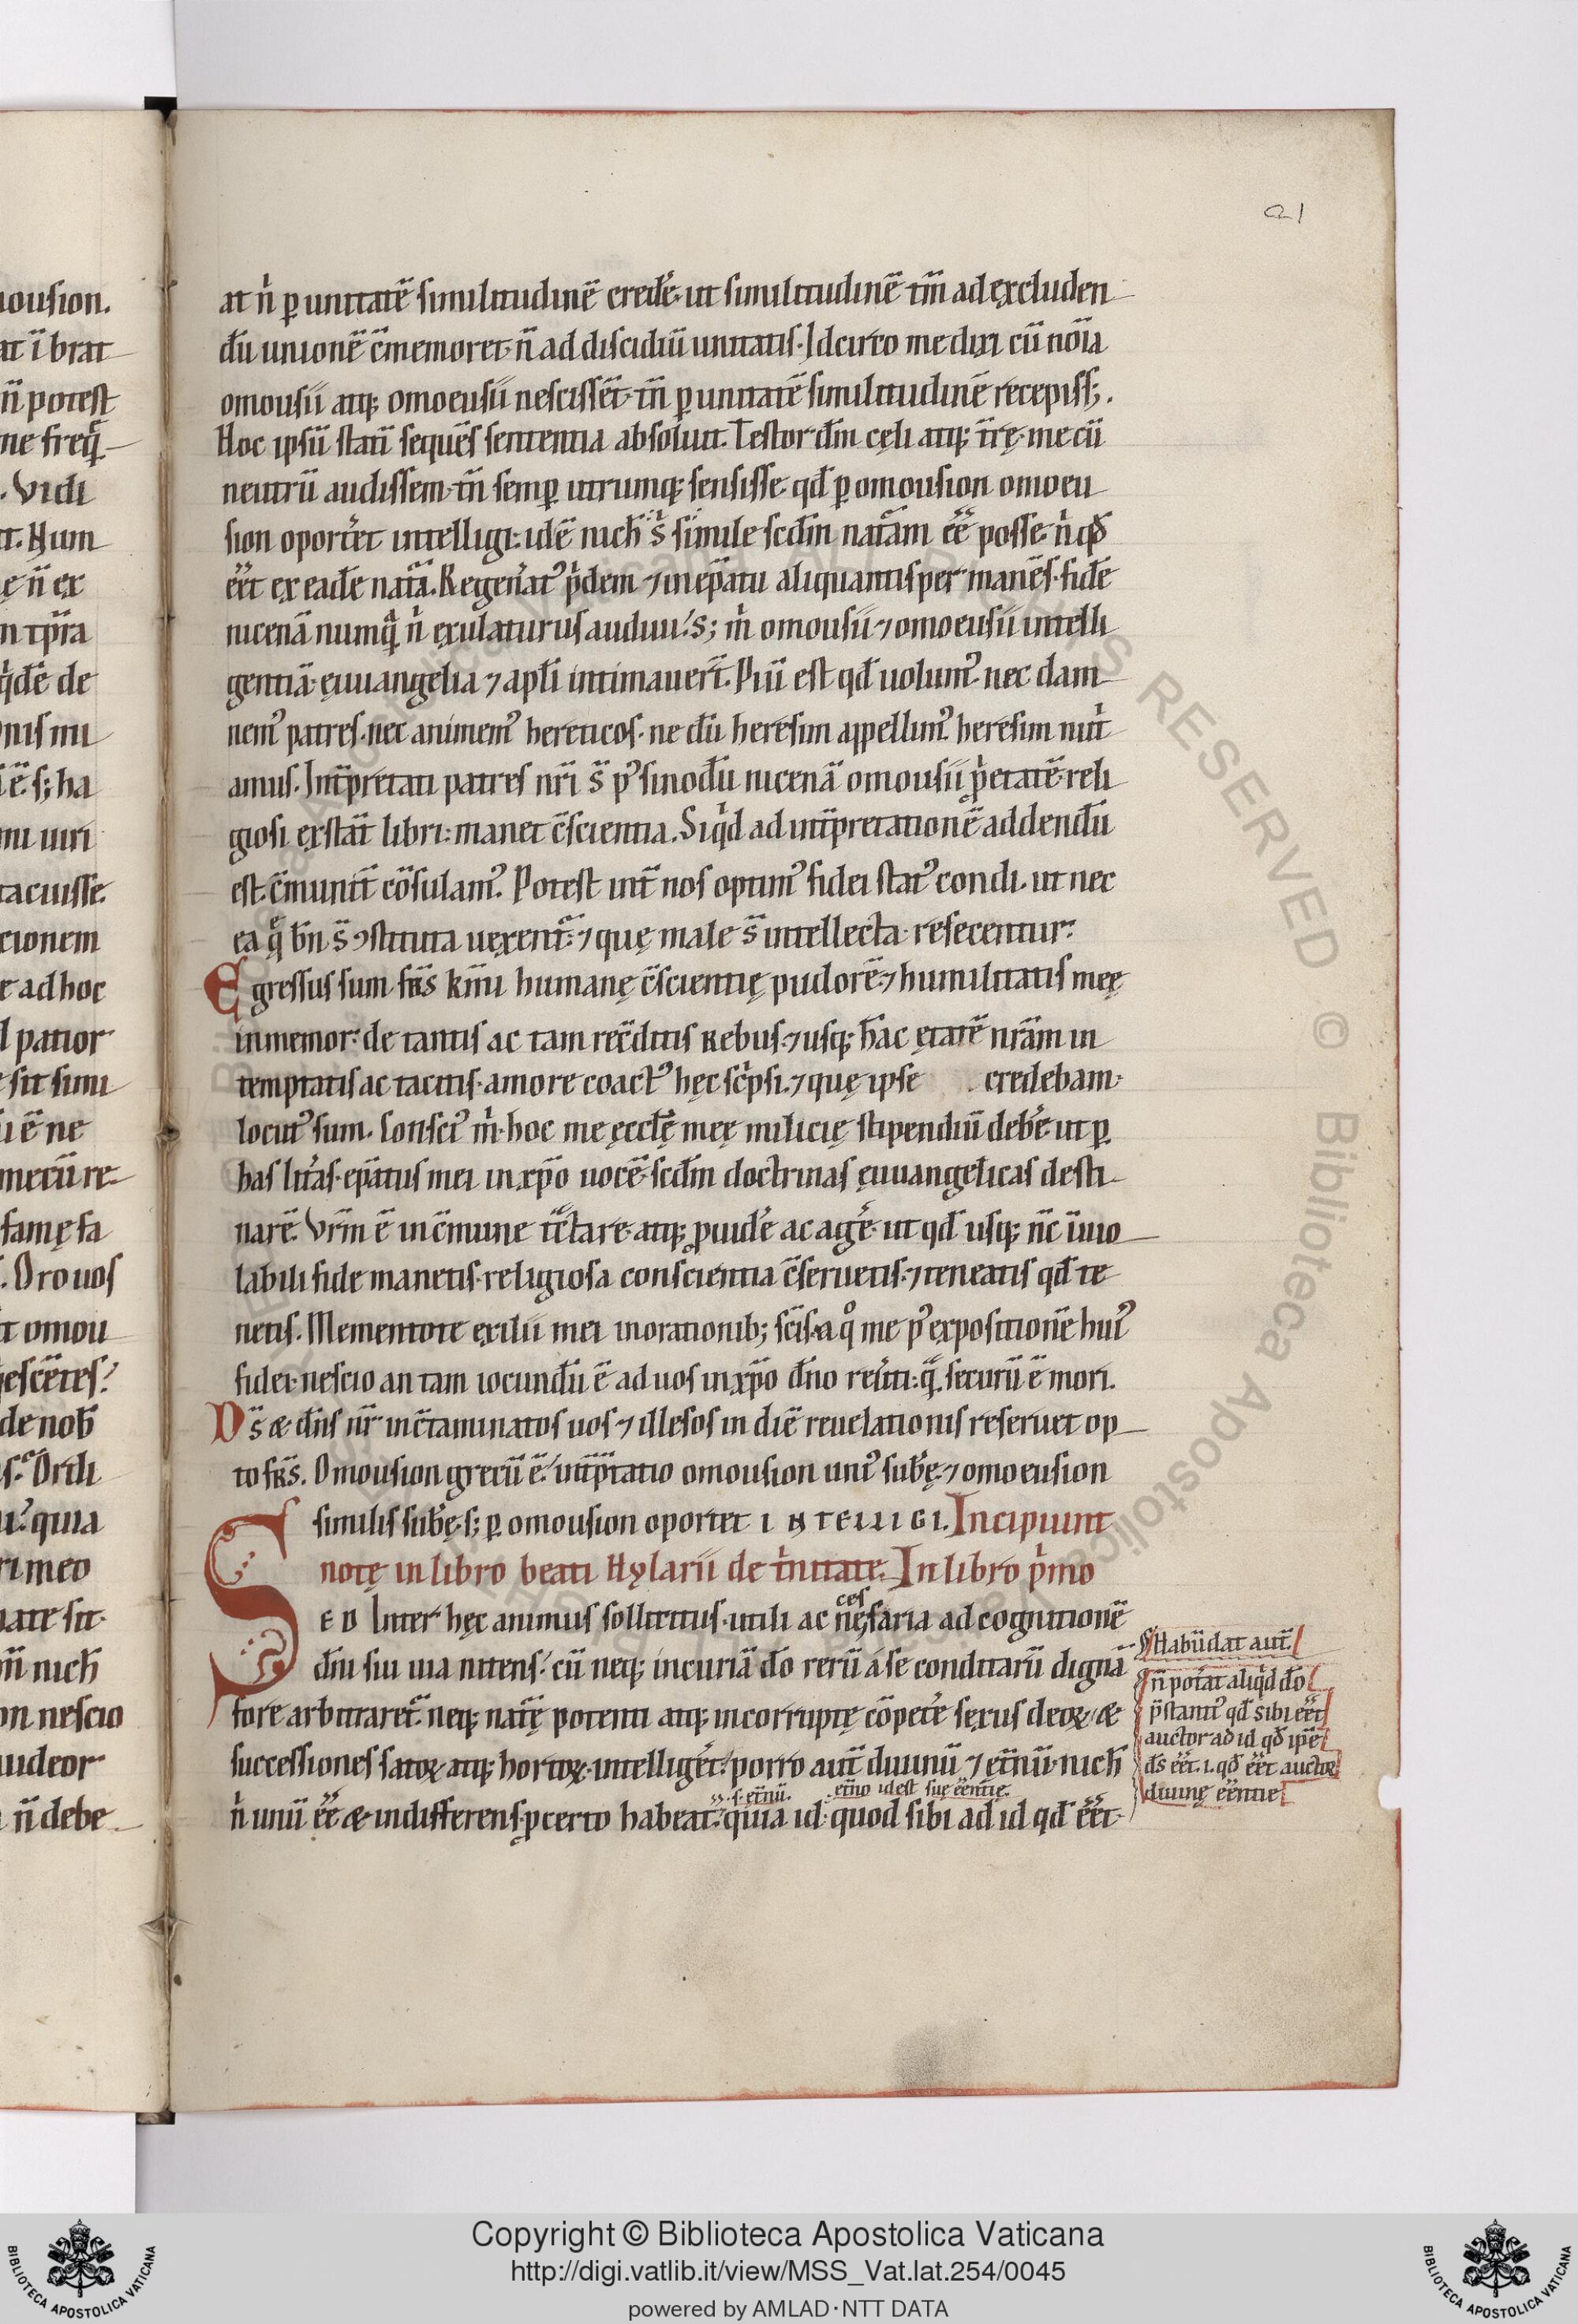 21
at n̍ ꝑ unitatē similitudinē credẽ· ut similitudinē tm̄ ad ęxcluden
dū unionē c̄memoret· n̄ ad discidiū unitatis. Idcirco me dixi cū nōia
omousii atq; omoeusii nescissēt· tm̄ ꝑ unitatē similitudinē recepiss;.
Hoc ipsū statī sequēs sententia absoluit. Testor dm̄ cęli atq; tr̄ę· me cū
neutrū audissem· tn̄ semꝑ utrumq; sensisse· qd̄ ꝑ omousion omoeu
sion oportet intelligi: idē nich̄ s̄ simile scdm̄ natām ēē posse· n̍ qđ
ēēt ex eadē natā. Regen̍atꝰ p̍dem ⁊ in ep̄atu aliquantisper manēs· fidē
nicenā numq̄ n̍ exulaturus audiui. S; m̍ omousii ⁊ omoeusii intelli
gentiā· ęuuangelia ⁊ apl̄i intimaver̄t. Piū est qd̄ uolumꝰ· nec dam
nemꝰ patres· nec animemꝰ hereticos· ne dū heresim appellimꝰ heresim nut̍
amus. Int̄pretati patres nr̄i s̄ pꝰ sinodū nicenā omousii p̍etatē· reli
giosi exstāt libri: manet c̄scientia. Siq̍d ad int̄pretationē addendū
est· c̄munit̄ cōsulamꝰ. Potest int̄ nos optimꝰ fidei statꝰ condi· ut nec
ea q̄ bn̄ s̄ ꝯstituta uexent̄· ⁊ quę male s̄ intellecta· resecentur.
Egressus sum frs̄ km̄i humanę c̄scientię pudorē· ⁊ humilitatis meę
inmemor· de tantis ac tam rec̄ditis rebus· ⁊ usq; h̄ac ętatē nr̄am in
temptatis ac tacitis· amore coactꝰ hęc sc̍psi· ⁊ quę ipse credebam·
locutꝰ sum. Consciꝰ m̍· hoc me ęccl̄ę meę milicię stipendiū debẽ· ut ꝑ
has litas· ep̄atus mei in xp̄o uocē· scdm̄ doctrinas ęuuangelicas desti
narē. Vrm̄ ē in c̄mune t̄ctare· atq; ꝓuidẽ ac agẽ· ut qd̄ usq; nc̄ īuio
labili fide manetis· religiosa conscientia c̄seruetis· ⁊ teneatis qd̄ te
netis. Mementote exilii mei in orationib; scīs· a qͦ me pꝰ expositionē huiꝰ
fidei· nescio an tam iocundū ē ad uos in xp̄o dn̄o reu̍ti: q̄. securū ē mori.
Ds̄ & dn̄s nr̄ inc̄taminatos uos ⁊ illesos in diē reuelationis reseruet op
to frs̄. Omousion grecū ē· int̄p̄tatio omousion uniꝰ sub̄ę· ⁊ omoeusion
similis sub̄ę· s; ꝑ omousion oportet INTELLIGI. Incipiunt
notę in libro beati Hylarii de t̍nitate. In libro p̍mo
SED Inter hęc animus sollicitus· utili ac necessaria ad cognitionē
dn̄i sui uia nitens· cū neq; incuriā dō rerū a se conditarū dignā
fore arbitraret̄· neq; nat̄ę potenti atq; incorruptę cōpetẽ sexus deoꝝ &
successiones satoꝝ atq; hortoꝝ· intelliget· porro aut̄ diuinū ⁊ et̄nū· nich̄
.s. et̄nū. et̄no idest suę ēēntię.
n̍ unū ēē & indifferens· ꝓcerto habeat̄· quia id· quod sibi ad id qd̄ ēēt·
Habūdat aut̄.
n̄ potat aliq̍d dō
p̄stantiꝰ qd̄ sibi ēēt
auctor ad id qd̄ ip̄e
ds̄ ēēt .i. qd̄ ēēt auctor
diuinę ēēntię
ousion.
at ī brat
n̄ potest
ne freq̄
. Vidi
t. Num
ę n̄ ex
n tp̄ra
q̍dē de
nis mi
ē. s; ha
mi uiri
tacuisse.
cionem
t ad hoc
l patior
sit simi
ē ne
mecū re
famę fa
. Oro uos
t omou
nescētes?
de nob̄
s. Orth
quia
ri meo
nate sit·
nich̄
on nescio
uideor
n̄ debe
Copyright © Biblioteca Apostolica Vaticana
http://digi.vatlib.it/view/MSS_Vat.lat.254/0045
powered by AMLAD·NTT DATA
BIBLIOTECA APOSTOLICA VATICANA
BIBLIOTECA APOSTOLICA VATICANA